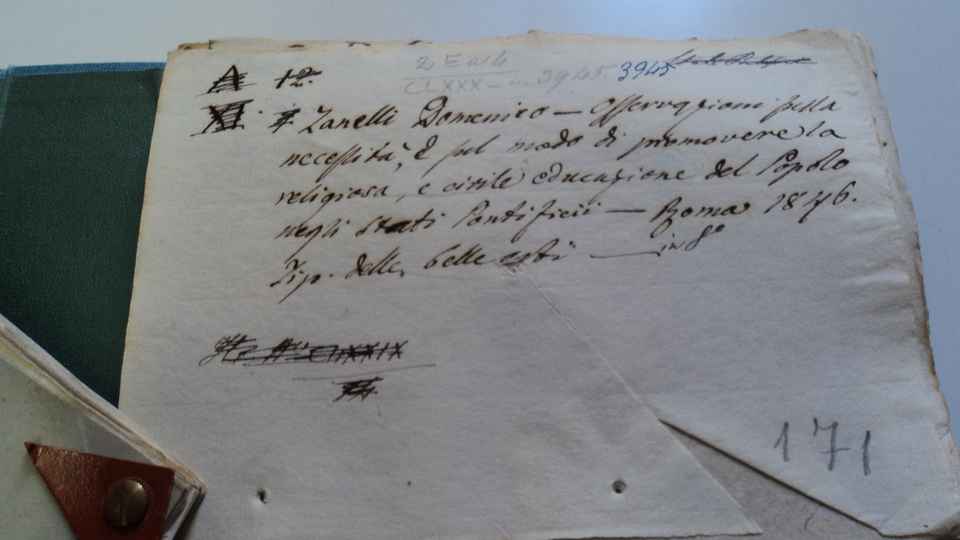 A 12.
3945
CLXXX - 3945
XI Zanelli Domenico — Osservazioni sulla
necessità, e sul modo di promovere la
religiosa, e civile educazione del Popolo
negli Stati Pontificii — Roma 1846.
Tip. delle belle arti — in 8º
171